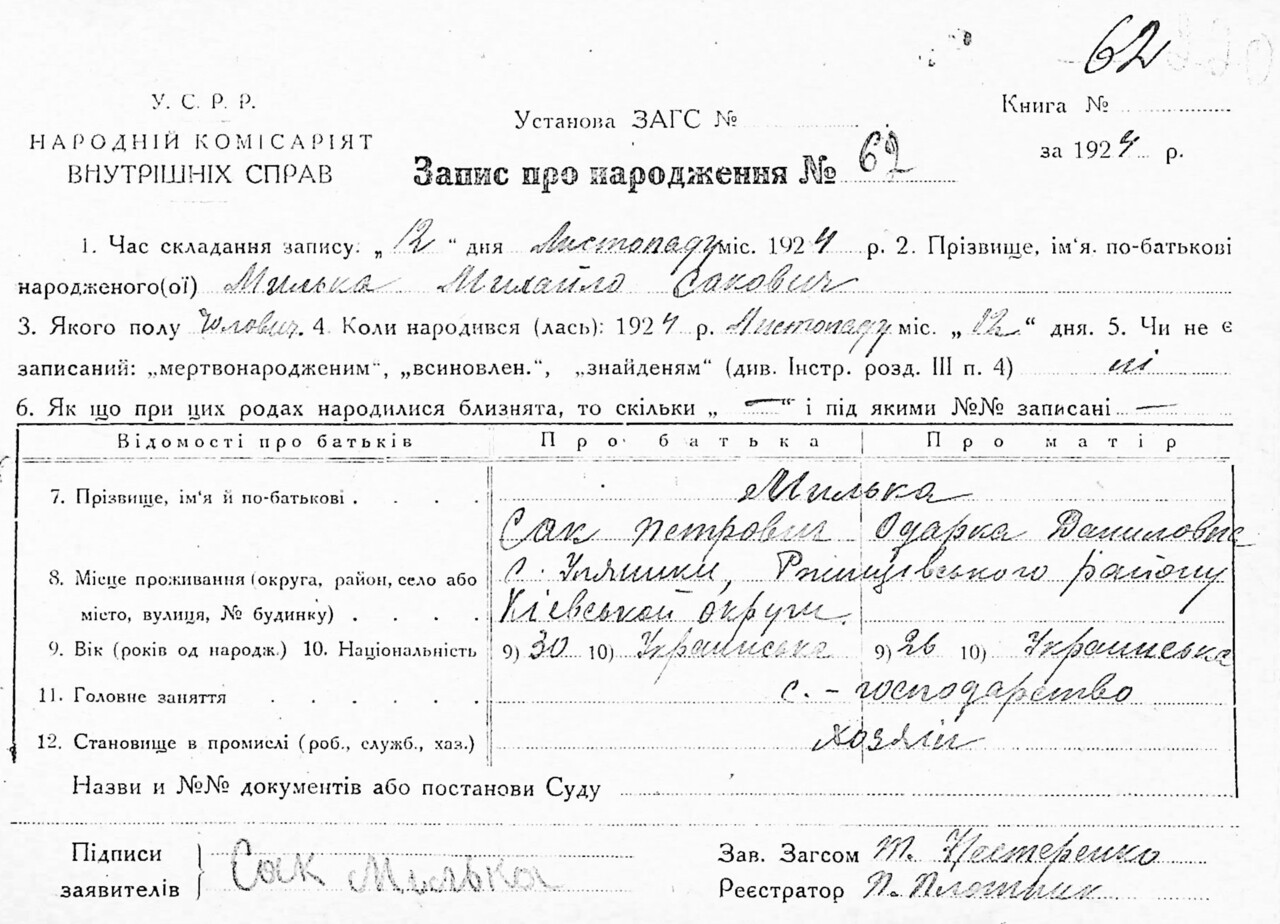 62
У. С. Р. Р.
НАРОДНІЙ КОМІСАРІЯТ
ВНУТРІШНІХ СПРАВ
Установа ЗАГС №
Книга №
за 1924 р.
Запис про народження № 62
1. Час складання запису. „ 12 “ дня Листопаду міс. 1924 р. 2. Прізвище, ім‘я. по-батькові
народженого(ої) Милька Михайло Сакович
3. Якого полу Чолович. 4. Коли народився (лась): 1924 р. Листопаду міс. „ 12 “ дня. 5. Чи не є
записаний: „мертвонародженим“, „всиновлен.“, „знайденям“ (див. Інстр. розд. III п. 4) ні
6. Як що при цих родах народилися близнята, то скільки „ — “ і під якими №№ записані —
Відомості про батьків Про батька Про матір
7. Прізвище, ім‘я й по-батькові . . . . Милька
Сак Петрович Одарка Даниловна
8. Місце проживання (округа, район, село або с. Уляники, Ржищівського району
місто, вулиця, № будинку) . . . . Київської округи.
9. Вік (років од народж.) 10. Національність 9) 30 10) Украинська 9) 26 10) Украинська
11. Головне заняття . . . . . . с. - господарство
12. Становище в промислі (роб., служб., хаз.) хозяін
Назви и №№ документів або постанови Суду
Підписи
заявителів Сак Милька
Зав. Загсом Т. Нестеренко
Реєстратор П. Плотник